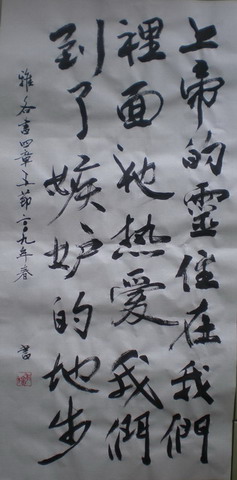 上帝的靈住在我們
裡面祂熱愛我們
到了嫉妒的地步
雅各書四章五節二〇〇九年春
書